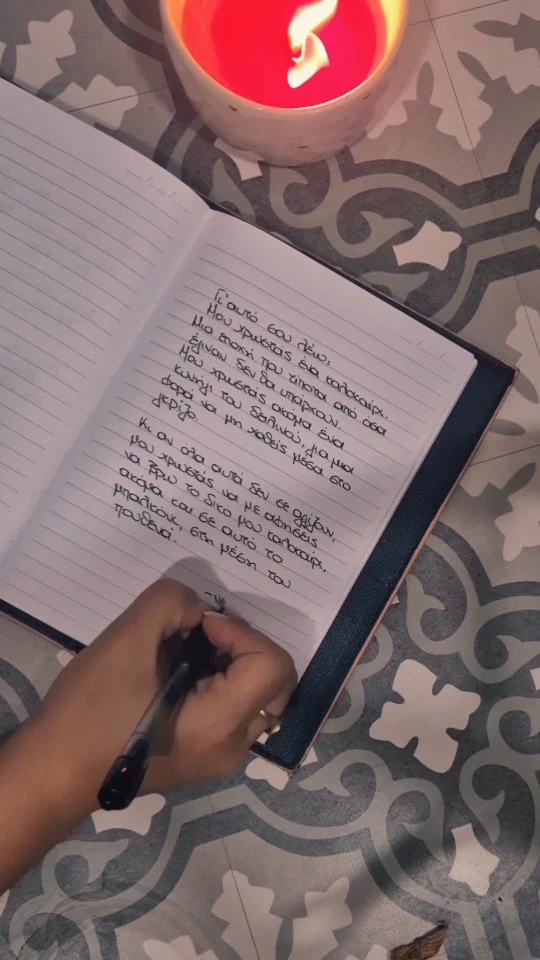 Γι'αυτό σου λέω,
Μου χρωστάς ένα καλοκαίρι.
Μια εποχή που τίποτα από όσα
έγιναν δεν θα υπάρχουν.
Μου χρωστάς ακόμα ένα
κυνήγι του δειλινού, για μια
φορά να μη χαθείς μέσα στο
γκρίζο.
Κι αν όλα αυτά δεν σε αγγίζουν,
μου χρωστάς να με αφήσεις
να το δικό μου καλοκαίρι.
ακόμα και σε αυτό το
μπαλκόνι, στη μέση του
πουθενά.